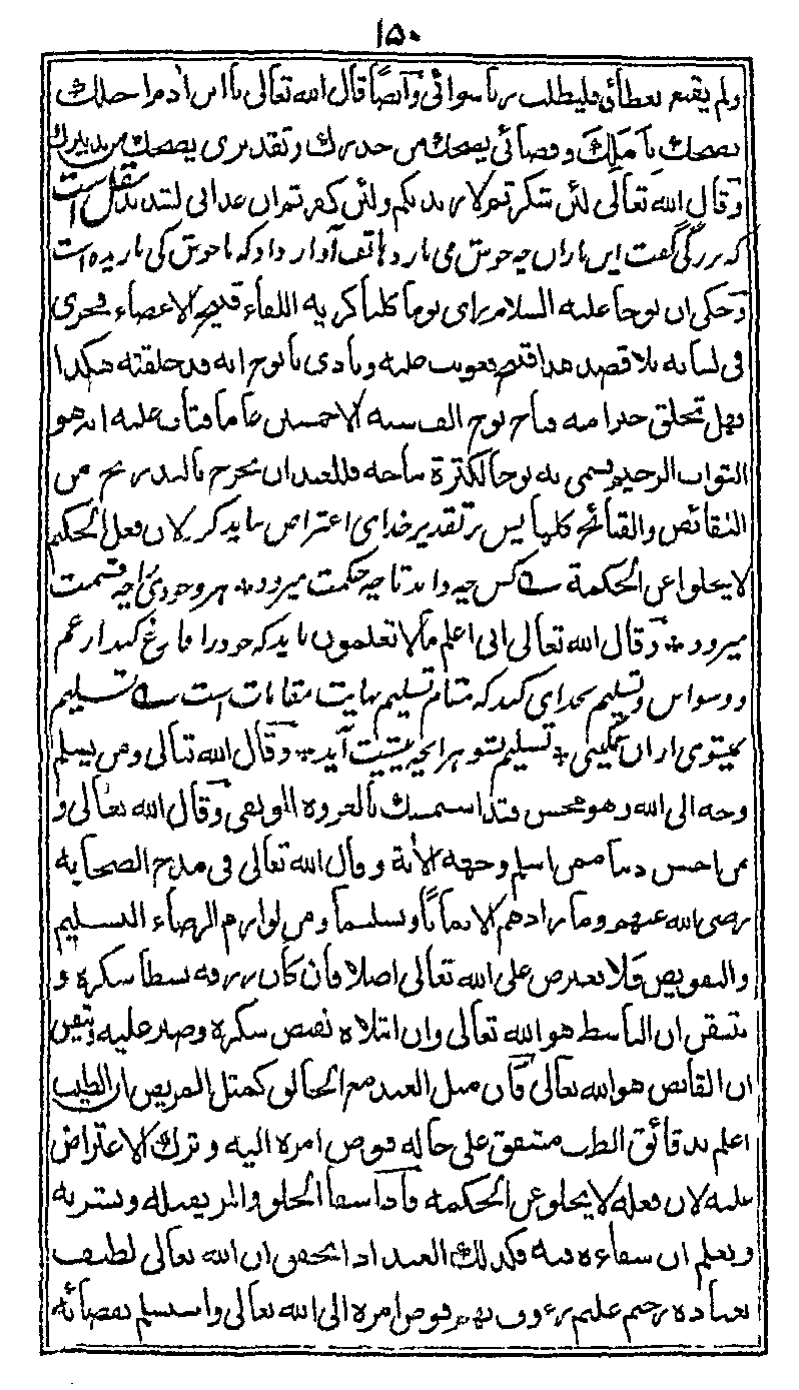 ١٥٠
ولم يقنع بعطائى فليطلب ربا سوائى وايضا قال الله تعالى يا ابن ادم اجلك
يضحك باملك وقضائى يضحك من حذرك وتقديرى يضحك من تدبيرك
وقال الله تعالى لئن شكرتم لازيدنكم ولئن كفرتم ان عذابى لشديد نقل است
كه بزرگى گفت اين باران چه خوش مى بارد هاتف آواز داد كه ناخوش كى باريده است
وحكى ان نوحا عليه السلام راى يوما كلبا كريه اللقاء قبيح الاعضاء فجرى
فى لسانه بلا قصد هذا قبيح فعوتب عليه ونادى يا نوح انه قد خلقته هكذا
فهل تخلق خيرا منه فناح نوح الف سنة الا خمسين عاما فتاب عليه انه هو
التواب الرحيم فسمى به نوحا لكثرة نياحه فللعبد ان يحرج من
النقائص والقبائح كلها پس بر تقدير خداى اعتراض نبايد كرد لان فعل الحكيم
لا يخلوا عن الحكمة كس چه داند تا چه حكمت ميرود * هر وجودى را چه قسمت
ميرود * وقال الله تعالى انى اعلم ما لا تعلمون بايد كه خود را فارغ كند از غم
ووسواس وتسليم بخداى كند كه مقام تسليم نهايت مقامات است تسليم
تسليم شو هر انچه پيشت آيد * وقال الله تعالى ومن يسلم
وجهه الى الله وهو محسن فقد استمسك بالعروة الوثقى وقال الله تعالى و
من احسن دينا ممن اسلم وجهه الآية وقال الله تعالى فى مدح الصحابة
رضى الله عنهم وما زادهم الا ايمانا وتسليما ومن لوازم الرضاء التسليم
والتفويض فلا يعترض على الله تعالى اصلا فان كان رزقه بسطا شكره و
تيقن ان الباسط هو الله تعالى وان ابتلاه بقبض شكره وصبر عليه وتيقن
ان القابض هو الله تعالى فان مثل العبد مع الخالق كمثل المريض ان الطبيب
اعلم بدقائق الطب مشفق على حاله فوض امره اليه وترك الاعتراض
عليه لان فعله لا يخلو عن الحكمة فاذا سقاه الحلو والمر يقبله ويشربه
ويعلم ان شفاءه فيه فكذلك العبد اذا تحقق ان الله تعالى لطيف
بعباده رحيم عليم رءوف بهم فوض امره الى الله تعالى واستسلم بقضائه